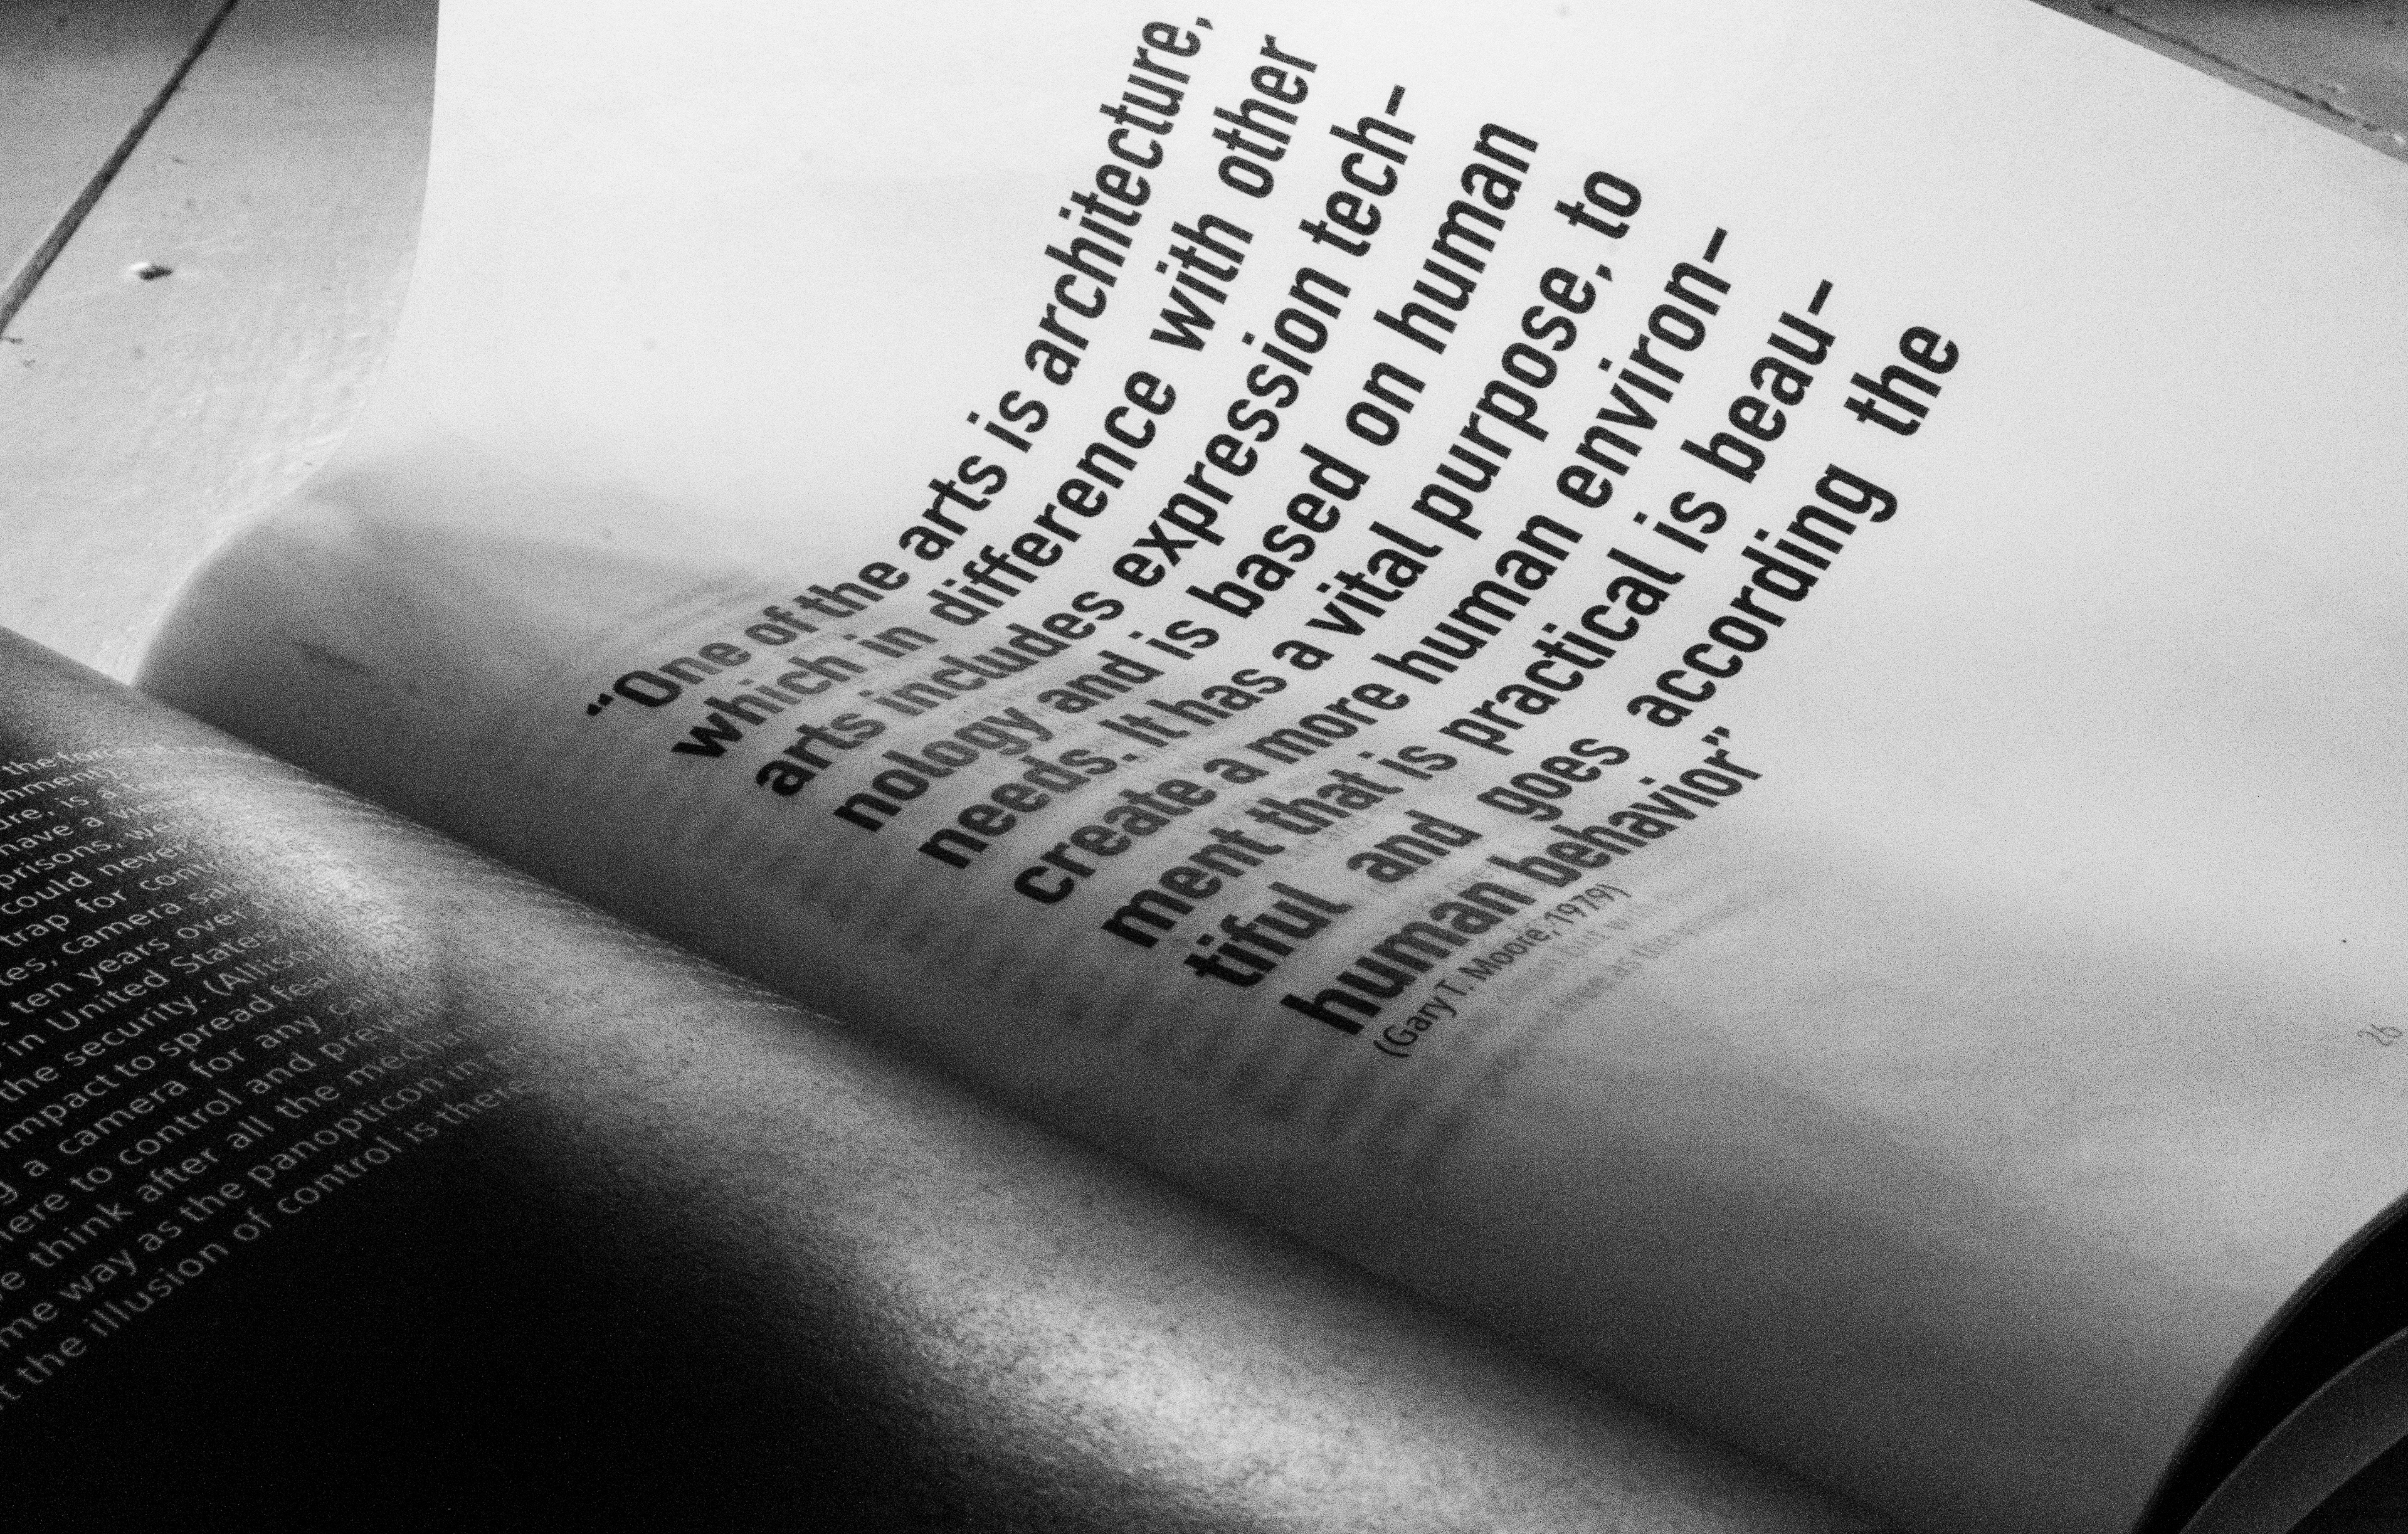 the
have a
prisons, we
could never
trap for
camera
ten years over
in United States
the security.
impact to spread fear
a camera for any
to control and
think after all the
way as the panopticon in
the illusion of control is there
“One of the arts is architecture,
which in difference with other
arts includes expression tech-
nology and is based on human
needs. It has a vital purpose, to
create a more human environ-
ment that is practical is beau-
tiful and goes according the
human behavior”
(Gary T. Moore, 1979)
26